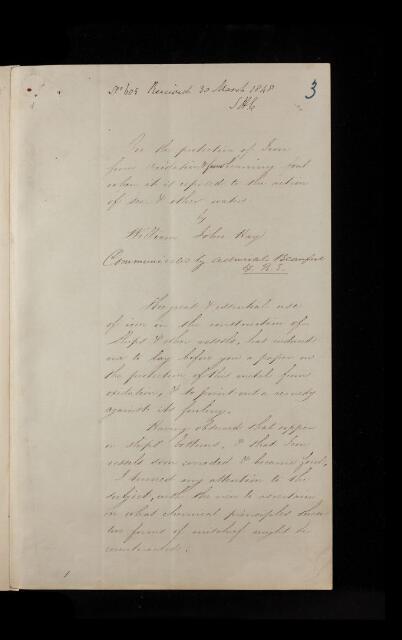 No 603 Received 30 March 1848
3
S H C
On the protection of Iron
from oxidation & from becoming foul
when it is exposed to the action
of sea & other water
by
William John Kay
Communicated by Admiral Beaufort
F. R. S.
The great & essential use
of iron in the construction of
ships & other vessels, has induced
me to lay before you a paper on
the protection of this metal from
oxidation, & to point out a remedy
against its fouling.
Having observed that copper
on ships' bottoms, & that Iron
vessels soon corroded & became foul,
I turned my attention to the
subject, with the view to ascertain
on what chemical principles these
two forms of mischief might be
counteracted.
1